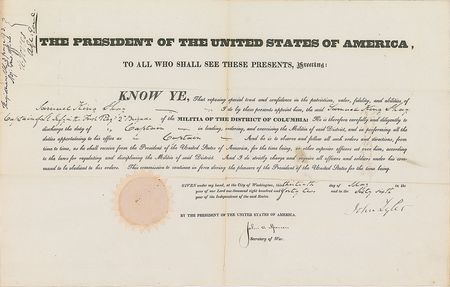 THE PRESIDENT OF THE UNITED STATES OF AMERICA,
TO ALL WHO SHALL SEE THESE PRESENTS, Greeting:
KNOW YE, That reposing special trust and confidence in the patriotism, valor, fidelity, and abilities, of
Samuel King Shay I do by these presents appoint him, the said Samuel King Shay
Captain of Infantry 2d Brigade of the MILITIA OF THE DISTRICT OF COLUMBIA: He is therefore carefully and diligently to
discharge the duty of Captain in leading, ordering, and exercising the Militia of said District, and in performing all the
duties appertaining to his office as Captain And he is to observe and follow all such orders and directions, from
time to time, as he shall receive from the President of the United States of America, for the time being, or other superior officers set over him, according
to the laws for regulating and disciplining the Militia of said District. And I do strictly charge and require all officers and soldiers under his com-
mand to be obedient to his orders. This commission to continue in force during the pleasure of the President of the United States for the time being.
GIVEN under my hand, at the City of Washington, this day of May in the
year of our Lord one thousand eight hundred and forty two and in the Sixty sixth
year of the Independence of the said States.
John Tyler
BY THE PRESIDENT OF THE UNITED STATES OF AMERICA.
Secretary of War.